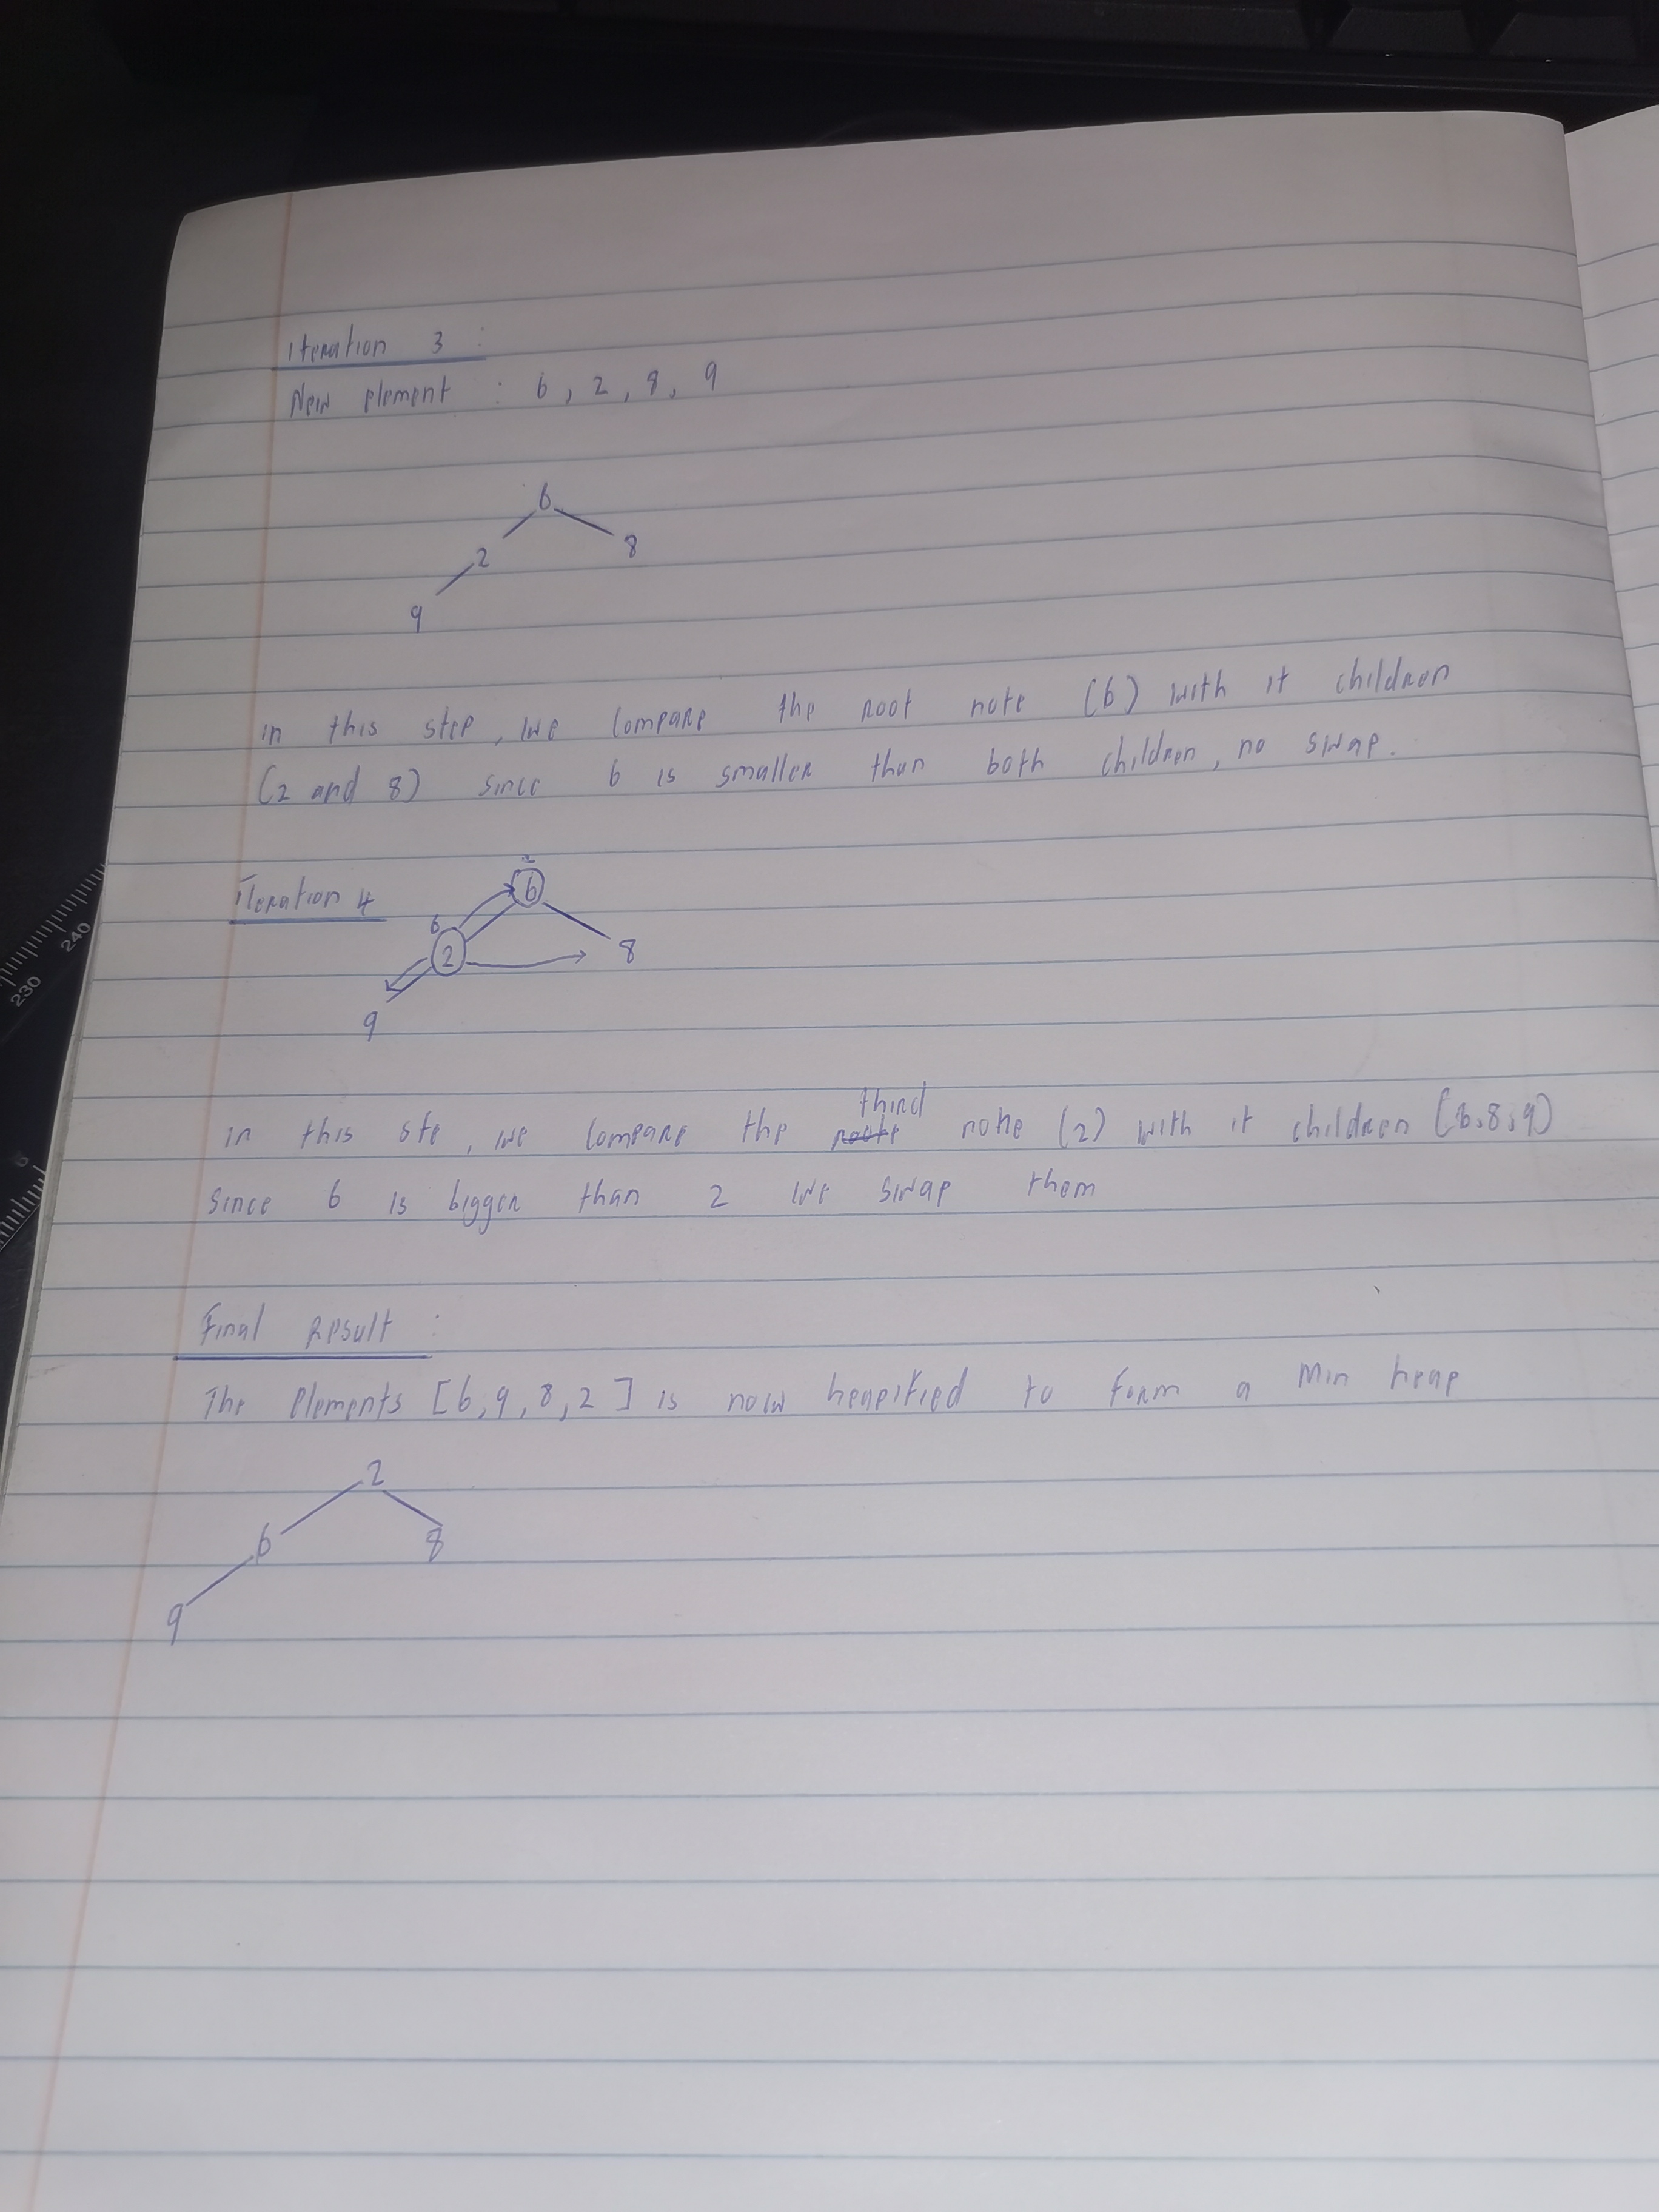 Iteration 3 :
New element : 6, 2, 8, 9
6
2
8
9
in this step, we compare the root note (6) with it children
(2 and 8) since 6 is smaller than both children, no swap.
iteration 4
2
6
6
2
8
9
third
in this ste, we compare the note (2) with it children (6,8,9)
since 6 is bigger than 2 we swap them
Final Result :
The elements [6,9,8,2] is now heapified to form a Min heap
2
6
8
9
240
230